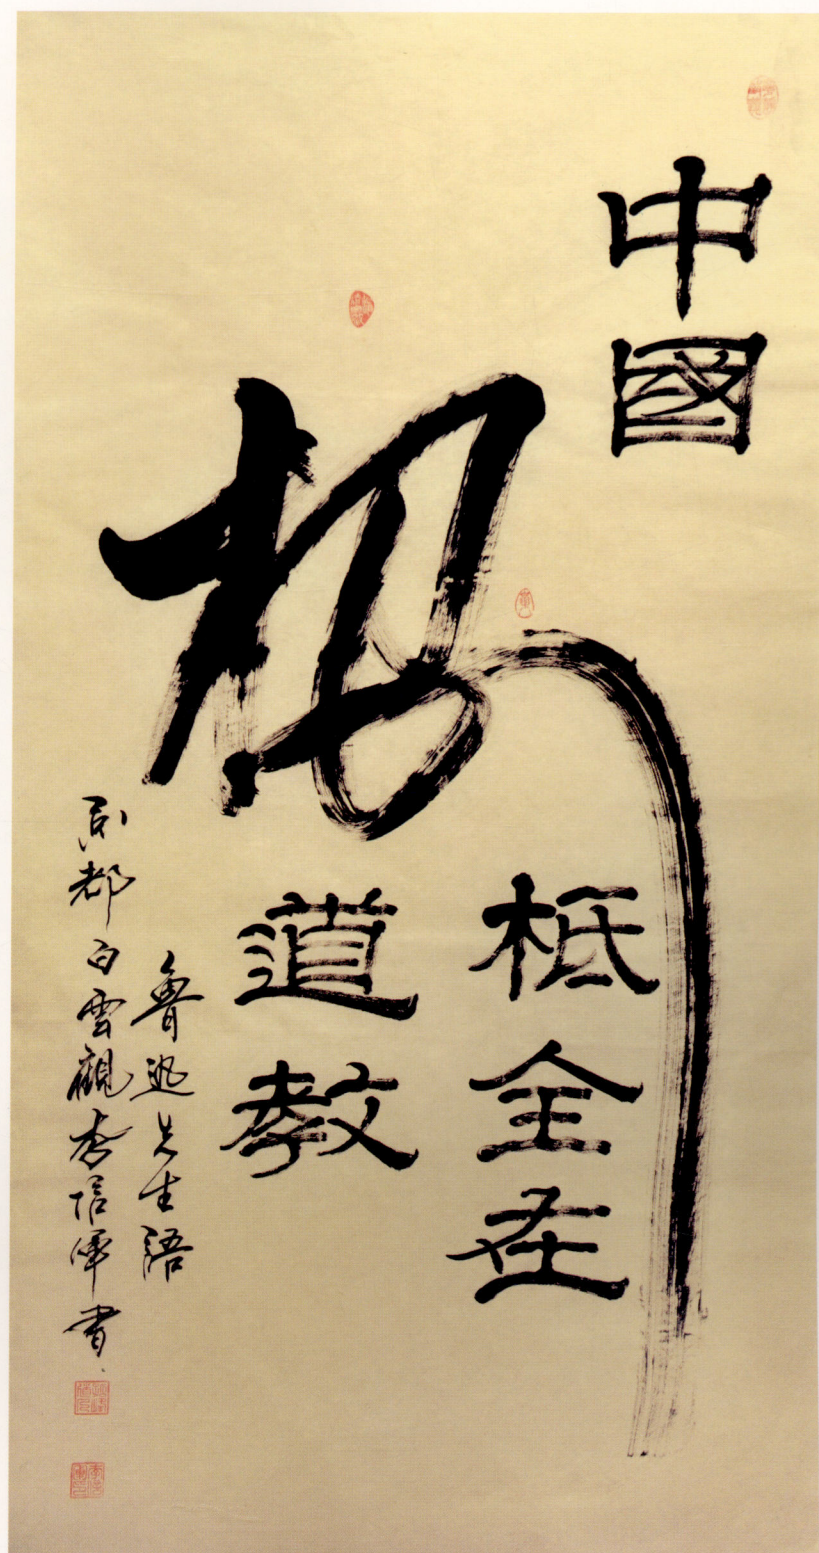 中國
根
柢全在
道教
魯迅先生語
成都白雲觀李信軍書